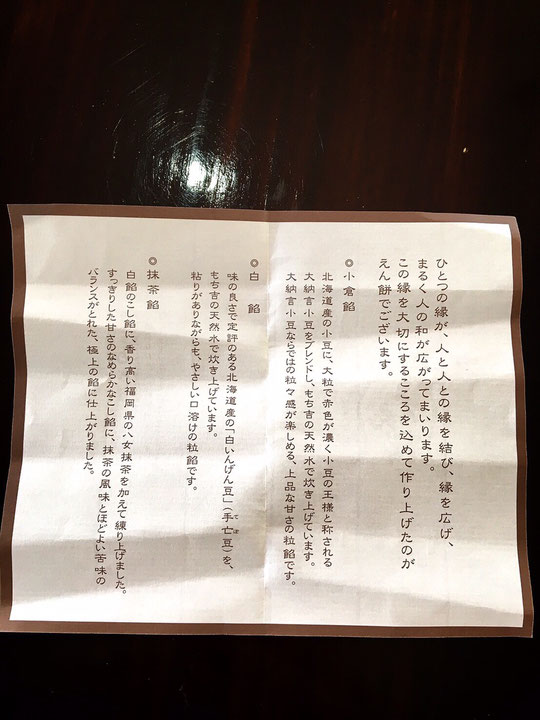 ひとつの縁が、人と人との縁を結び、縁を広げ、
まるく人の和が広がってまいります。
この縁を大切にするこころを込めて作り上げたのが
えん餅でございます。
◎小倉餡
北海道産の小豆に、大粒で赤色が濃く小豆の王様と称される
大納言小豆をブレンドし、もち吉の天然水で炊き上げています。
大納言小豆ならではの粒々感が楽しめる、上品な甘さの粒餡です。
◎白 餡
味の良さで定評のある北海道産の「白いんげん豆」(手亡豆)を、
てぼ
もち吉の天然水で炊き上げています。
粘りがありながらも、やさしい口溶けの粒餡です。
◎抹茶餡
白餡のこし餡に、香り高い福岡県の八女抹茶を加えて練り上げました。
すっきりした甘さのなめらかなこし餡に、抹茶の風味とほどよい苦味の
バランスがとれた、極上の餡に仕上がりました。